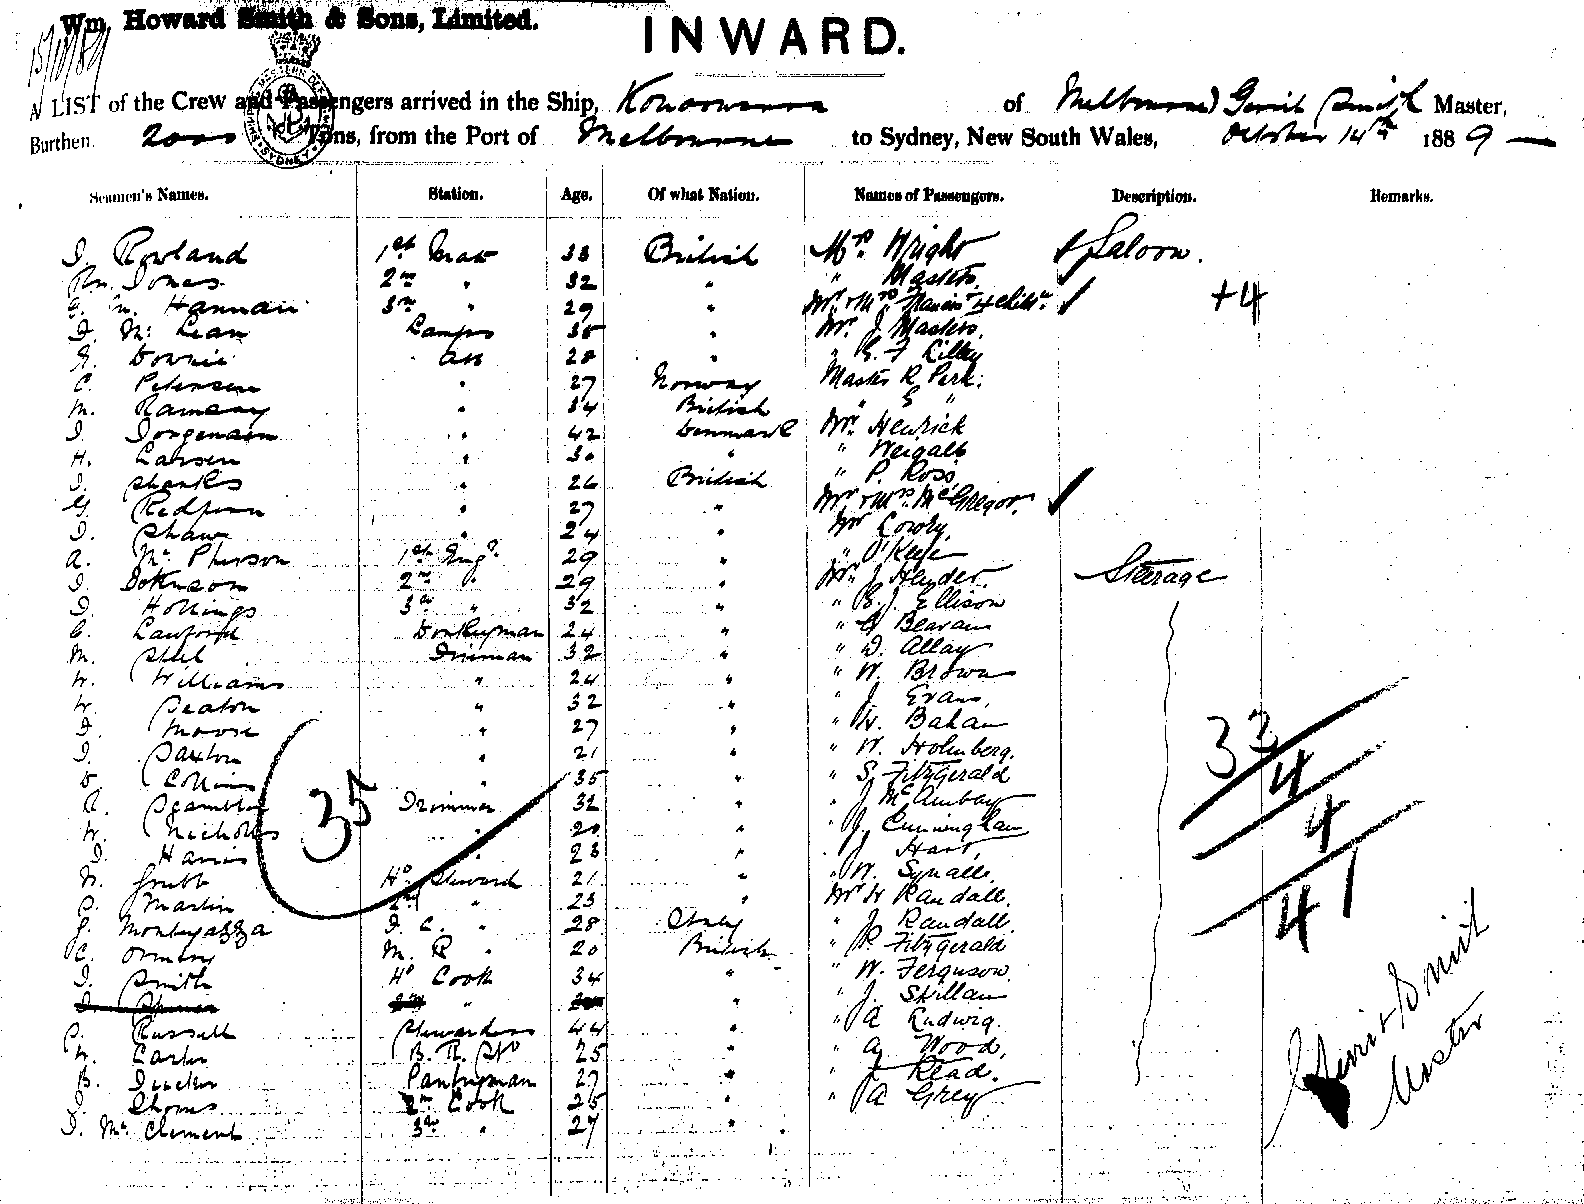 Wm. Howard Smith & Sons, Limited.
INWARD.
15/10/89
A LIST of the Crew and Passengers arrived in the Ship, Konoowarra of Melbourne Gerrit Smith Master,
Burthen 2000 Tons, from the Port of Melbourne to Sydney, New South Wales, October 14th 1889
Seamen's Names. Station. Age. Of what Nation. Names of Passengers. Description. Remarks.
J. Rowland 1st Mate 33 British Mrs. Wright Saloon.
Jones 2nd " 32 " " Masters
Hannan 3rd " 29 " Mr. & Mrs. 4 Child +4
J. Mc Lean Lamps 35 " Mr. J. Masters
Downie AB 28 " " E. F. Lilley
C. Petersen " 27 Norway Master R. Park.
M. Ramsay " 34 British " G "
J. Jorgensen " 42 Denmark Mr. Henrick
H. Larsen " 30 " " Weigall
J. Shanks " 26 British " P. Ross
G. Redfern " 27 " Mr & Mrs. McGregor.
J. Shaw " 24 " Mr Lowry,
A. Mc Pherson 1st Eng. 29 " " O'Keefe
J. 2nd " 29 " Mr. J. Hender. Steerage
J. Hollings 3rd " 32 " " E. J. Ellison
C. Lawford Donkeyman 24 " " Bearam
M. Steel Fireman 32 " " D. Allay
W. Williams " 24 " " W. Brown
W. Seaton " 32 " " J. Evans,
J. Moore " 27 " " W. Bahan
J. Saxton " 21 " " W. Holmberg. 33
D. Collins " 35 " " S. Fitzgerald 4
R. Trimmer 32 " " J. McAmbay
35
W. Nicholls " 20 " " J. Cunningham 4
J. Harris " 23 " " J. Hart,
W. Grubb Hd. Steward 21 " " W. Squalls
P. Martin 2nd " 23 " Mr H Randall. 41
G. Montegazza F. C. " 28 Italy " J. Randall.
C. Ormeny M. R " 20 British " P. Fitzgerald
J. Smith Hd Cook 34 " " W. Ferguson.
2nd " " " J. Skillan
P. Russell Stewardess 44 " " A Ludwig.
W. Carter B. R. Std 25 " " A. Wood,
B. Pantryman 27 " " J. Read.
J. Thoms 2nd Cook 25 " " A Grey
J. Mc Clement 3rd " 27 "
Gerrit Smith
Master